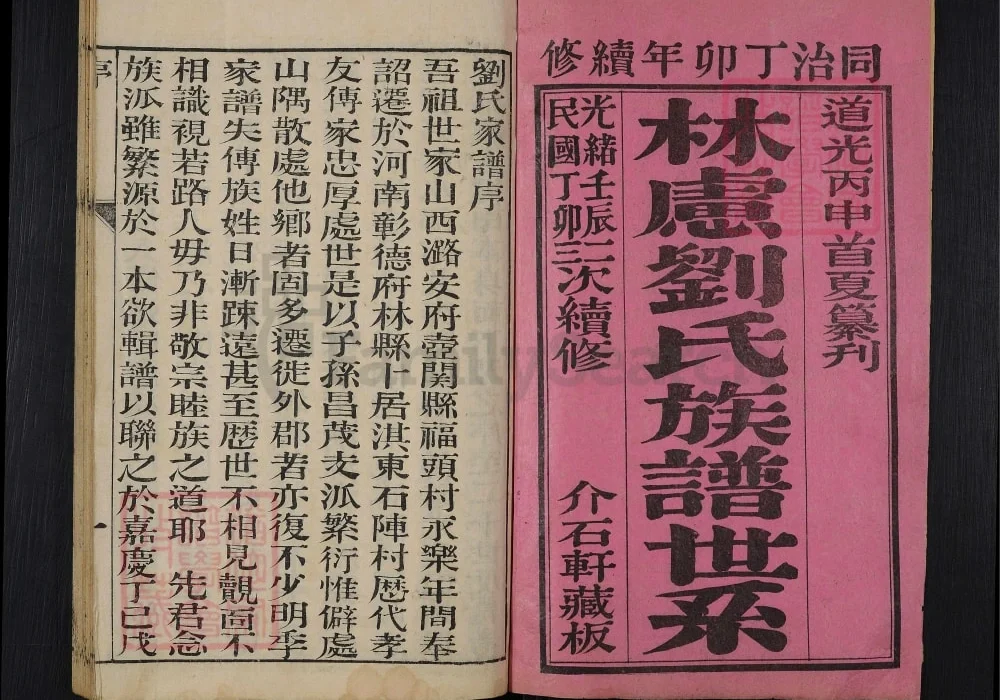 同治丁卯年續修
道光丙申首夏纂刊
林慮劉氏族譜世系
介石軒藏板
光緒壬辰二次續修
民國丁卯三次續修
劉氏家譜序
吾祖世家山西潞安府壺關縣福頭村永樂年間奉
詔遷於河南彰德府林縣卜居淇東石陣村歷代孝
友傳家忠厚處世是以子孫昌茂支派繁衍惟僻處
山隅散處他鄉者固多遷徙外郡者亦復不少明季
家譜失傳族姓日漸踈遠甚至歷世不相見覿面不
相識視若路人毋乃非敬宗睦族之道耶 先君念
族派雖繁源於一本欲輯譜以聯之於嘉慶丁巳戊
序
一